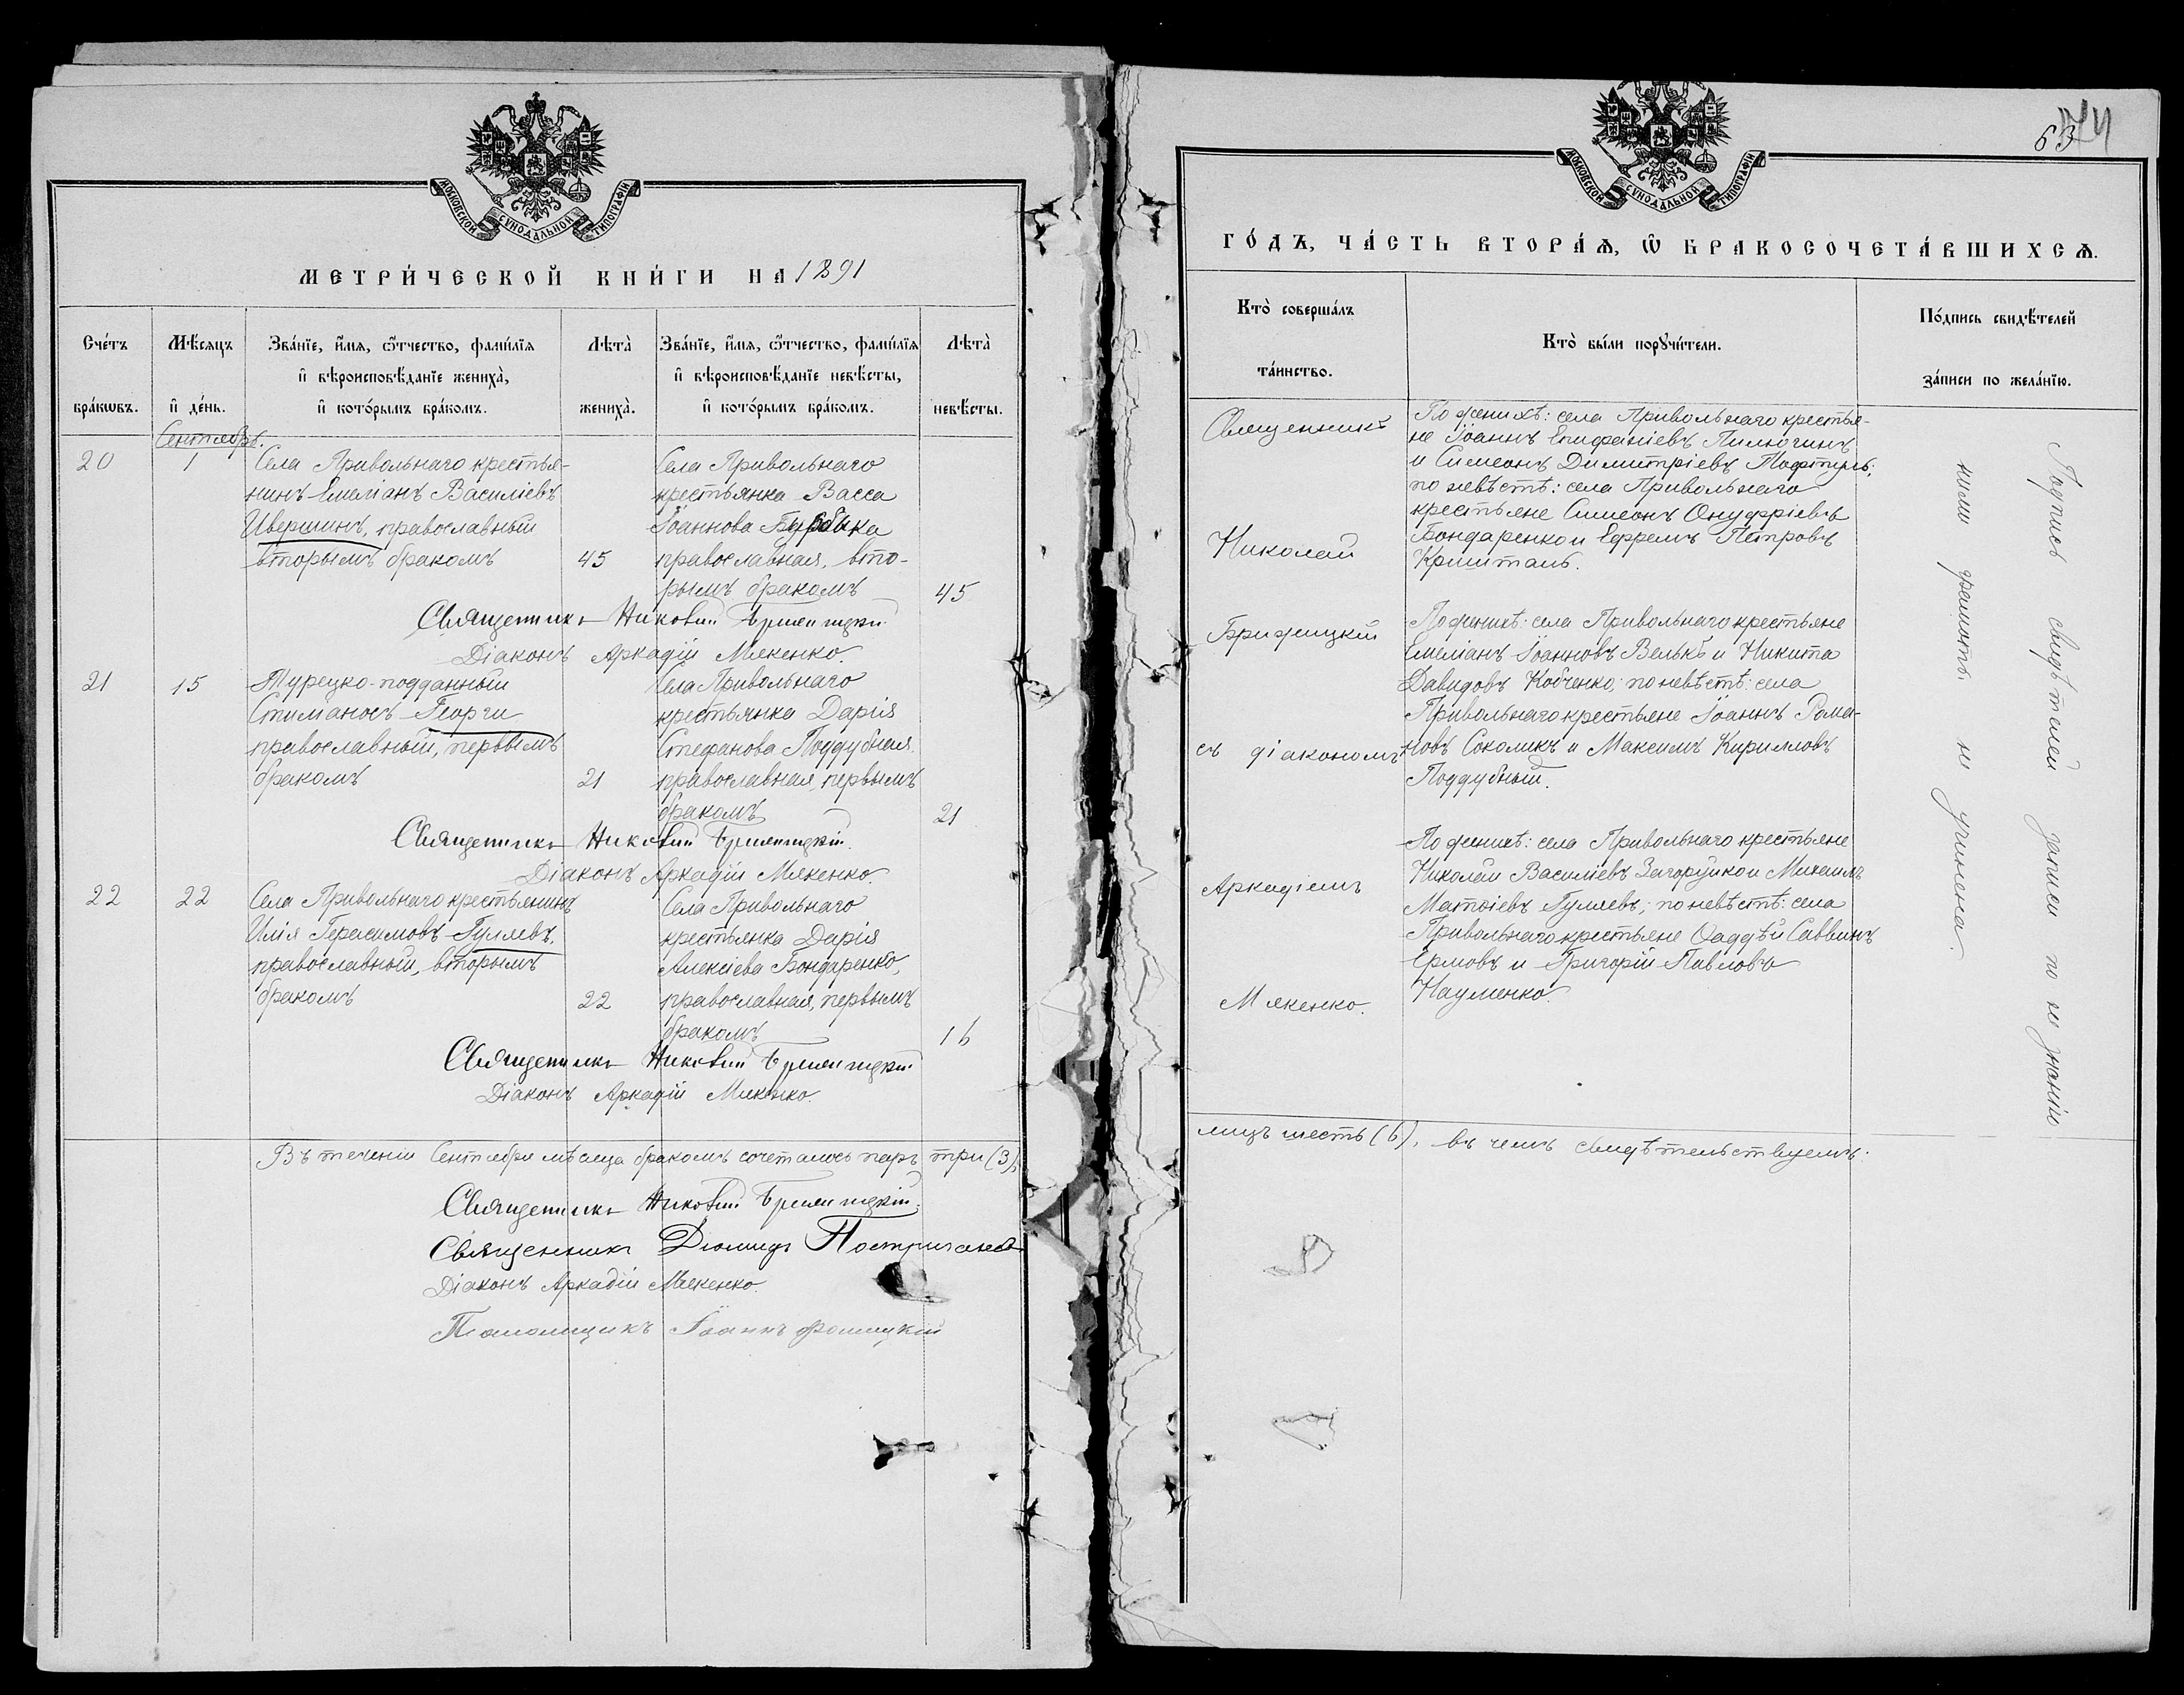 МОСКОВСКОЙ СУНОДАЛЬНОЙ ТИПОГРАФІИ
МЕТРИ́ЧЕСКОЙ КНИ́ГИ НА 1891
Сче́тъ бра́кѡвъ.
Мѣ́сяцъ и҆ де́нь.
Зва́нїе, и҆́мѧ, ѻ҆́тчество, фамı́лїѧ
и҆ вѣроисповѣ́данїе жениха̀,
и҆ кото́рымъ бра́комъ.
Лѣта̀ жениха̀.
Зва́нїе, и҆́мѧ, ѻ҆́тчество, фамı́лїѧ
и҆ вѣроисповѣ́данїе невѣ́сты,
и҆ кото́рымъ бра́комъ.
Лѣта̀ невѣ́сты.
Сентябрь.
20
1
Села Привольнаго крестья-
нинъ Емеліанъ Василіевъ
Ивершинъ, православный
вторымъ бракомъ
45
Села Привольнаго
крестьянка Васса
Іоаннова
православная, вто-
рымъ бракомъ
45
Священникъ
Діаконъ Аркадій Мякенко.
21
15
Турецко-подданный
Стиманосъ Георги
православный, первымъ
бракомъ
21
Села Привольнаго
крестьянка Дарія
Стефанова Поддубная
православная, первымъ
бракомъ
21
Священникъ
Діаконъ Аркадій Мякенко.
22
22
Села Привольнаго крестьянинъ
Илія Герасимовъ Гуляевъ,
православный, вторымъ
бракомъ
22
Села Привольнаго
крестьянка Дарія
Алексіева Бондаренко,
православная, первымъ
бракомъ
16
Священникъ
Діаконъ Аркадій Мякенко.
Въ теченіи Сентября мѣсяца бракомъ сочеталось паръ три (3),
Священникъ
Священникъ Діомидъ
Діаконъ Аркадій Мякенко.
Іоаннъ
63
МОСКОВСКОЙ СУНОДАЛЬНОЙ ТИПОГРАФІИ
ГО́ДЪ, ЧА́СТЬ ВТОРА́Ѧ, Ѽ БРАКОСОЧЕТА́ВШИХСѦ.
Кто̀ соверша́лъ
та́инство.
Кто̀ бы́ли порꙋчи́тели.
По́дпись свидѣ́телей
за́писи по жела́нїю.
Священникъ
Николай
Брижицкій
съ діакономъ
Аркадіемъ
Мякенко.
По женихѣ: села Привольнаго крестья-
не Іоаннъ Епифаніевъ Пилюгинъ
и Симеонъ Димитріевъ
по невѣстѣ: села Привольнаго
крестьяне Симеонъ Онуфріевъ
Бондаренко и Ефремъ Петровъ
Кришталь.
По женихѣ: села Привольнаго крестьяне
Емеліанъ Іоанновъ Велькъ и Никита
Давидовъ Кобченко; по невѣстѣ: села
Привольнаго крестьяне Іоаннъ Рома-
новъ Соколикъ и Максимъ Кирилловъ
Поддубный.
По женихѣ: села Привольнаго крестьяне
Николай Василіевъ Загоруйко и Михаилъ
Матѳіевъ Гуляевъ; по невѣстѣ: села
Привольнаго крестьяне Ѳаддѣй Саввинъ
Ермовъ и Григорій Павловъ
Науменко.
Подпись свидѣтелей записи по не знанію
ними грамоты не учинена.
лицъ шесть (6), въ чемъ свидѣтельствуемъ.